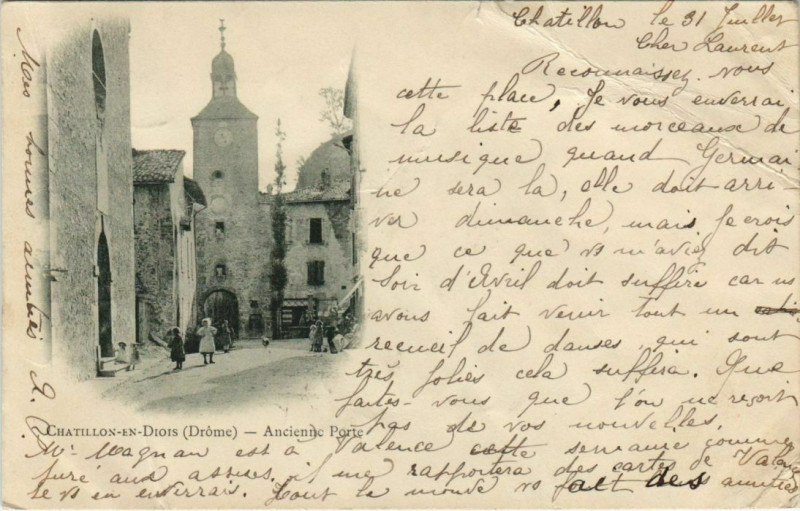 Chatillon le 31 Juillet
Cher Laurent
Reconnaissez-vous
cette place, Je vous enverrai
la liste des morceaux de
musique quand Germai
ne sera la, elle doit arri-
ver dimanche, mais Je crois
que ce que vs m'aviez dit
Soir d'Avril doit suffire car ns
avons fait venir tout un
recueil de danses, qui sont
très Jolies cela suffira. Que
faites-vous que l'on ne reçoit
pas de vos nouvelles.
CHATILLON-EN-DIOIS (Drôme) — Ancienne Porte
Mr Magnan est a Valence cette semaine comme
juré aux assises, il me rapportera des cartes de Valence
Je vs en enverrais. Tout le monde vs fait des amitiés
Mes bonnes amitiés